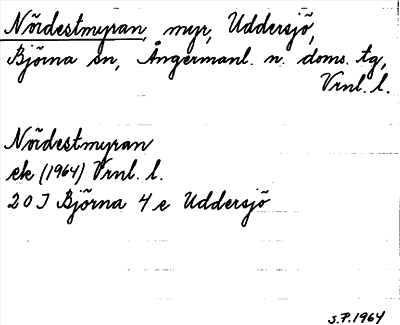 Nördestmyran, myr, Uddersjö,
Björna sn, Ångermanl. n. doms. tg,
Vrnl. l.
Nördestmyran
ek (1964) Vrnl. l.
20 J Björna 4 e Uddersjö
J.P. 1964